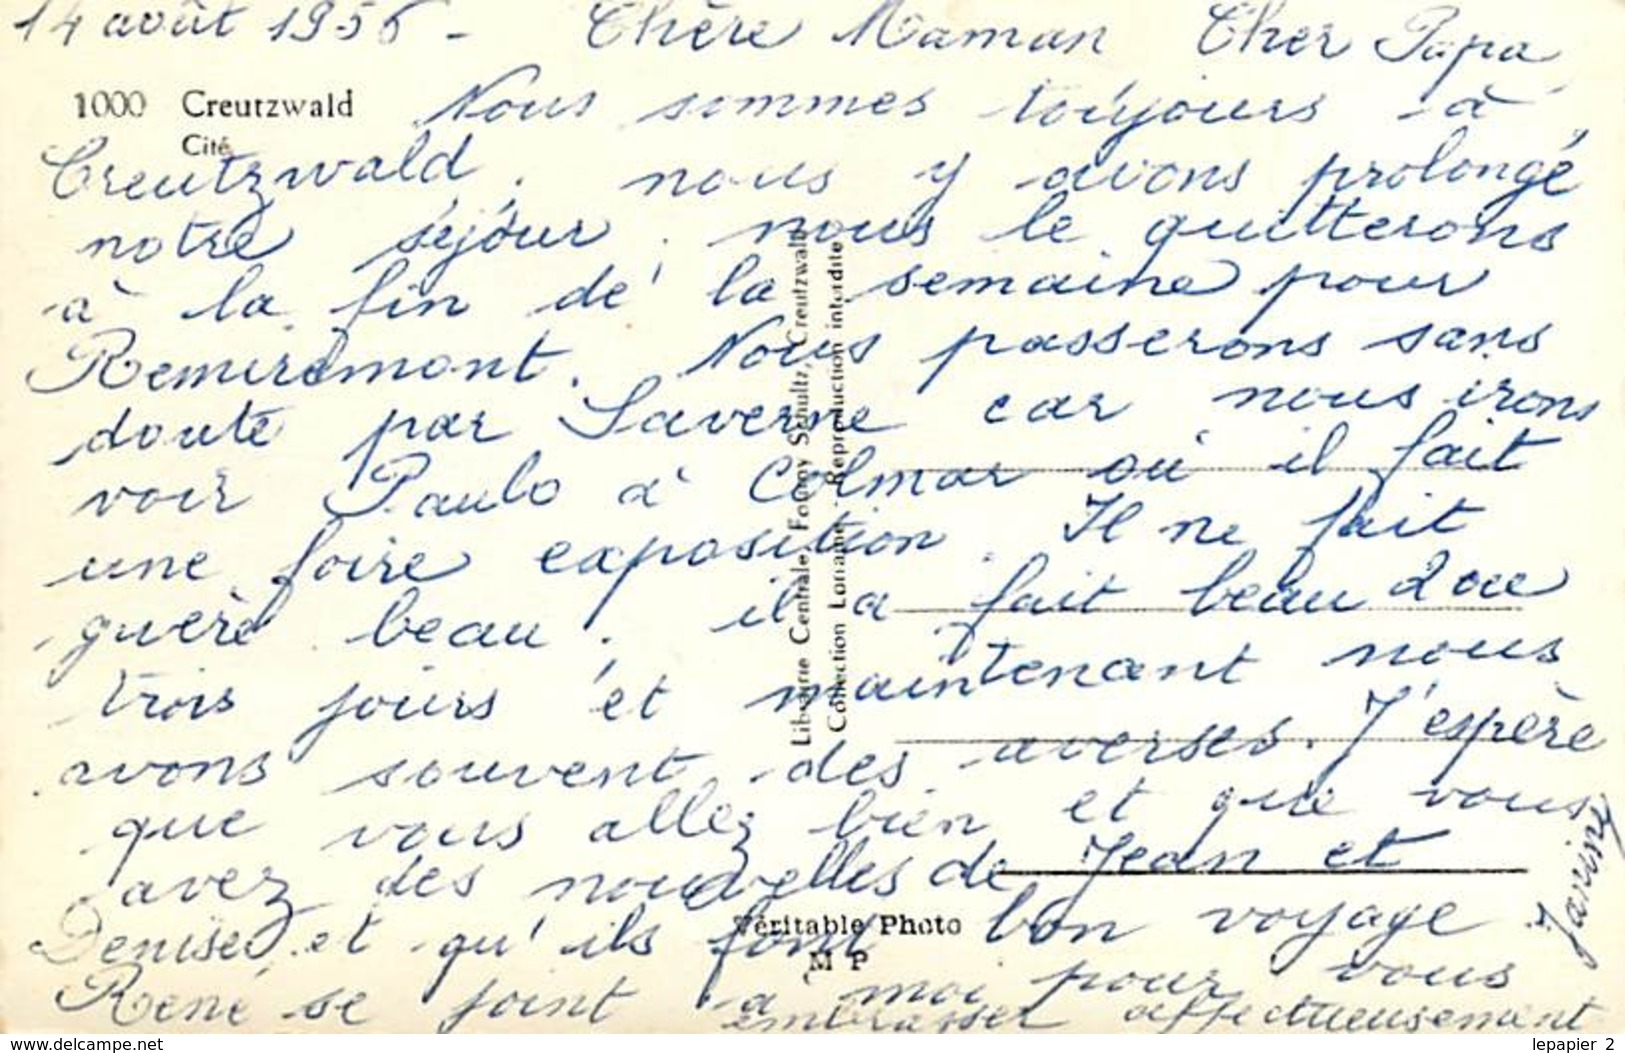 14 août 1956 - Chère Maman Cher Papa
1000 Creutzwald
Cité
Nous sommes toujours à
Creutzwald. nous y avons prolongé
notre séjour. nous le quitterons
à la fin de la semaine pour
Remiremont. Nous passerons sans
doute par Saverne car nous irons
voir Paulo à Colmar où il fait
une foire exposition. Il ne fait
guère beau. il a fait beau 2 ou
trois jours et maintenant nous
avons souvent des averses. J'espère
que vous allez bien et que vous
avez des nouvelles de Jean et
Denise et qu'ils font bon voyage.
René se joint à moi pour vous
embrasser affectueusement
Janine
Librairie Centrale, Schultz, Creutzwald
Collection Lorraine - Reproduction interdite
Véritable Photo
M P
lepapier_2